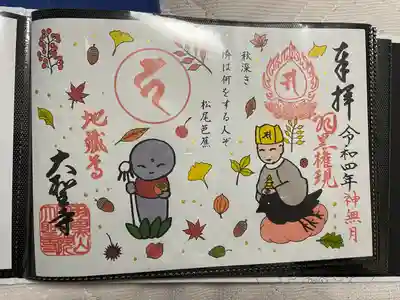 奉拝
令和四年
神無月
羽黒権現
秋深き
隣は何をする人ぞ
松尾芭蕉
地蔵尊
大聖寺